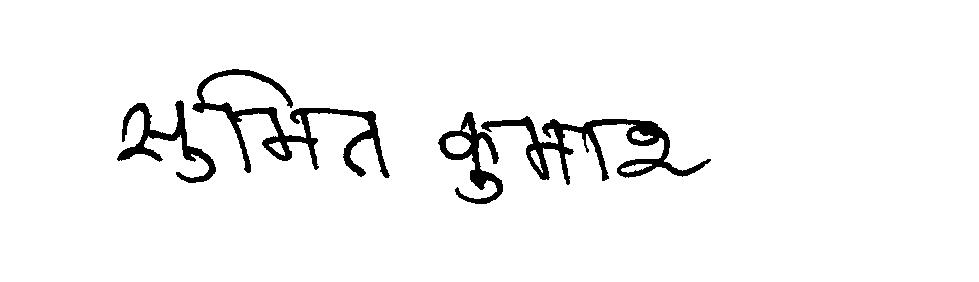 सुमित कुमार